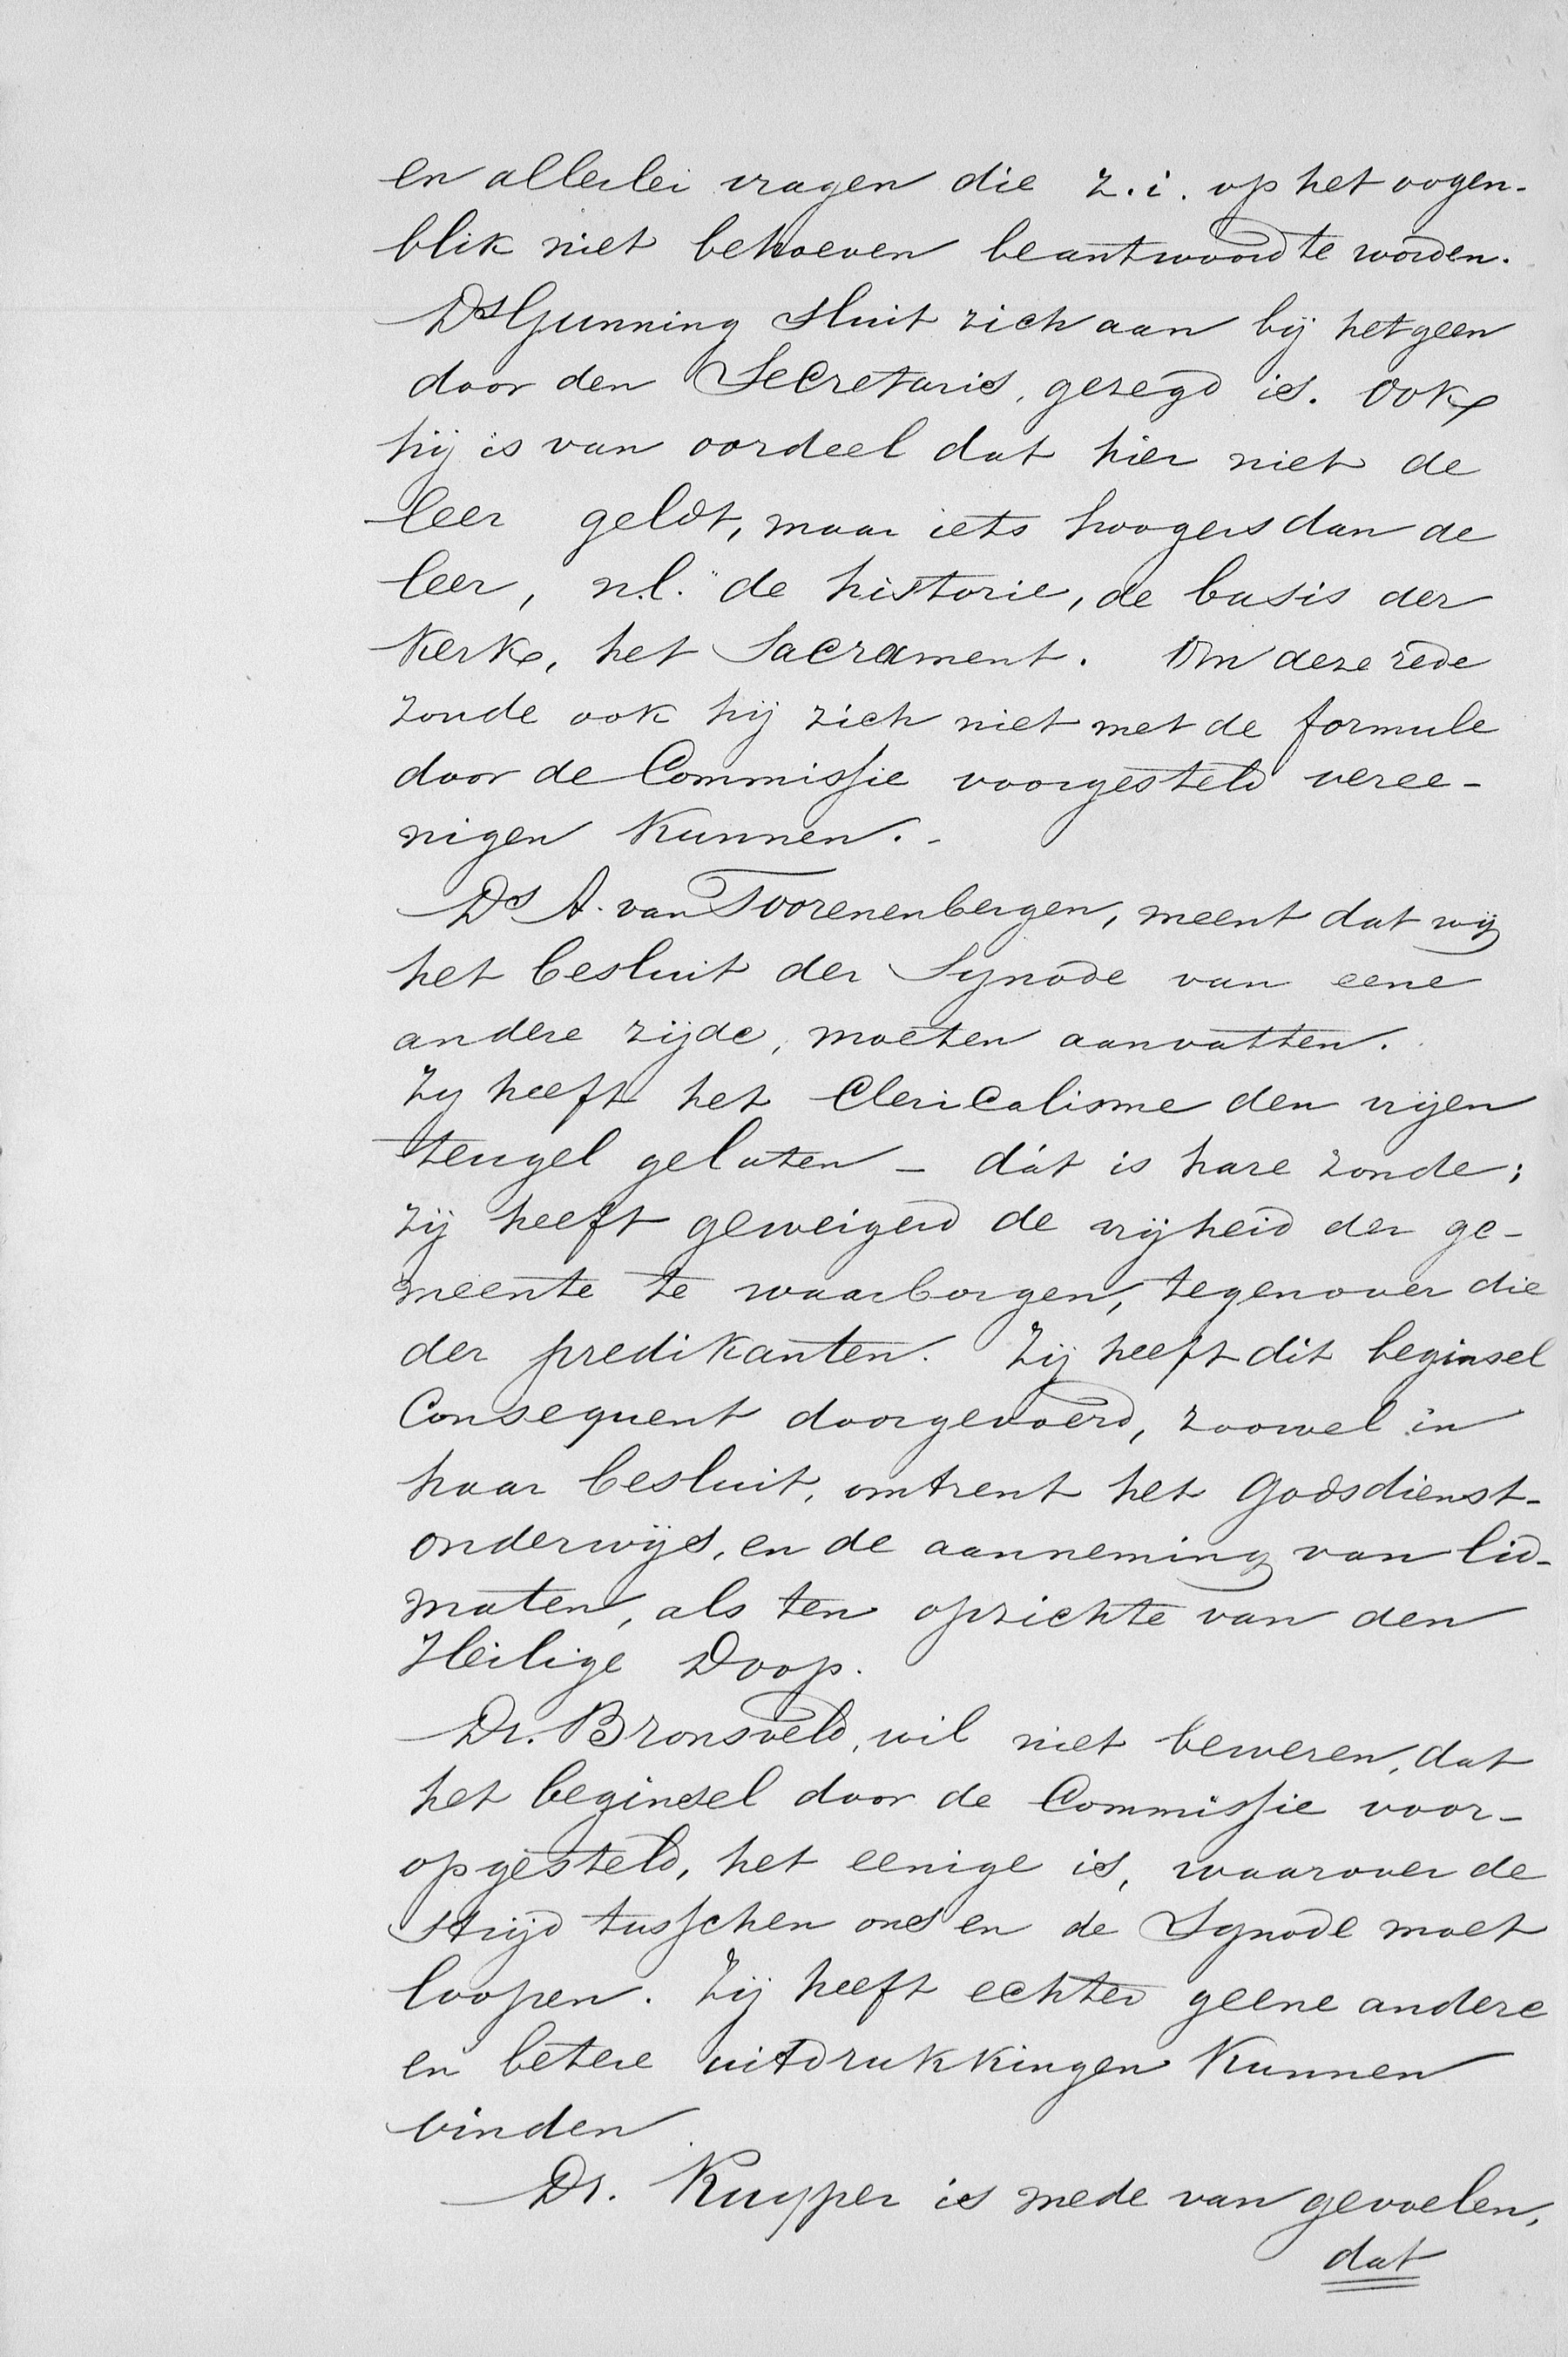 en allerlei vragen die z.i. op het oogen-
blik niet behoeven beantwoord te worden.
Ds Gunning sluit zich aan bij hetgeen
door den Secretaris, gezegd is. Ook
hij is van oordeel dat hier niet de
leer geldt, maar iets hoogers dan de
leer, n.l. de historie, de basis der
Kerk, het Sacrament. Om deze rede
zoude ook hij zich niet met de formule
door de Commissie voorgesteld veree-
nigen Kunnen.-
Ds A. van Toorenenbergen, meent dat wij
het besluit der Synode van eene
andere zijde, moeten aanvatten.
Zij heeft het Clericalisme den vrijen
teugel gelaten - dát is hare zonde;
zij heeft geweigerd de vrijheid der ge-
meente te waarborgen, tegenover die
der predikanten. Zij heeft dit beginsel
Consequent doorgevoerd, zoowel in
haar besluit, omtrent het Godsdienst-
onderwijs, en de aanneming van lid-
maten, als ten opzichte van den
Heilige Doop.
Dr. Bronsveld, wil niet beweren, dat
het beginsel door de Commissie voor-
opgesteld, het eenige is, waarover de
strijd tusschen ons en de Synode moet
loopen. Zij heeft echter geene andere
en betere uitdrukkingen Kunnen
vinden
Dr. Kuyper is mede van gevoelen,
dat